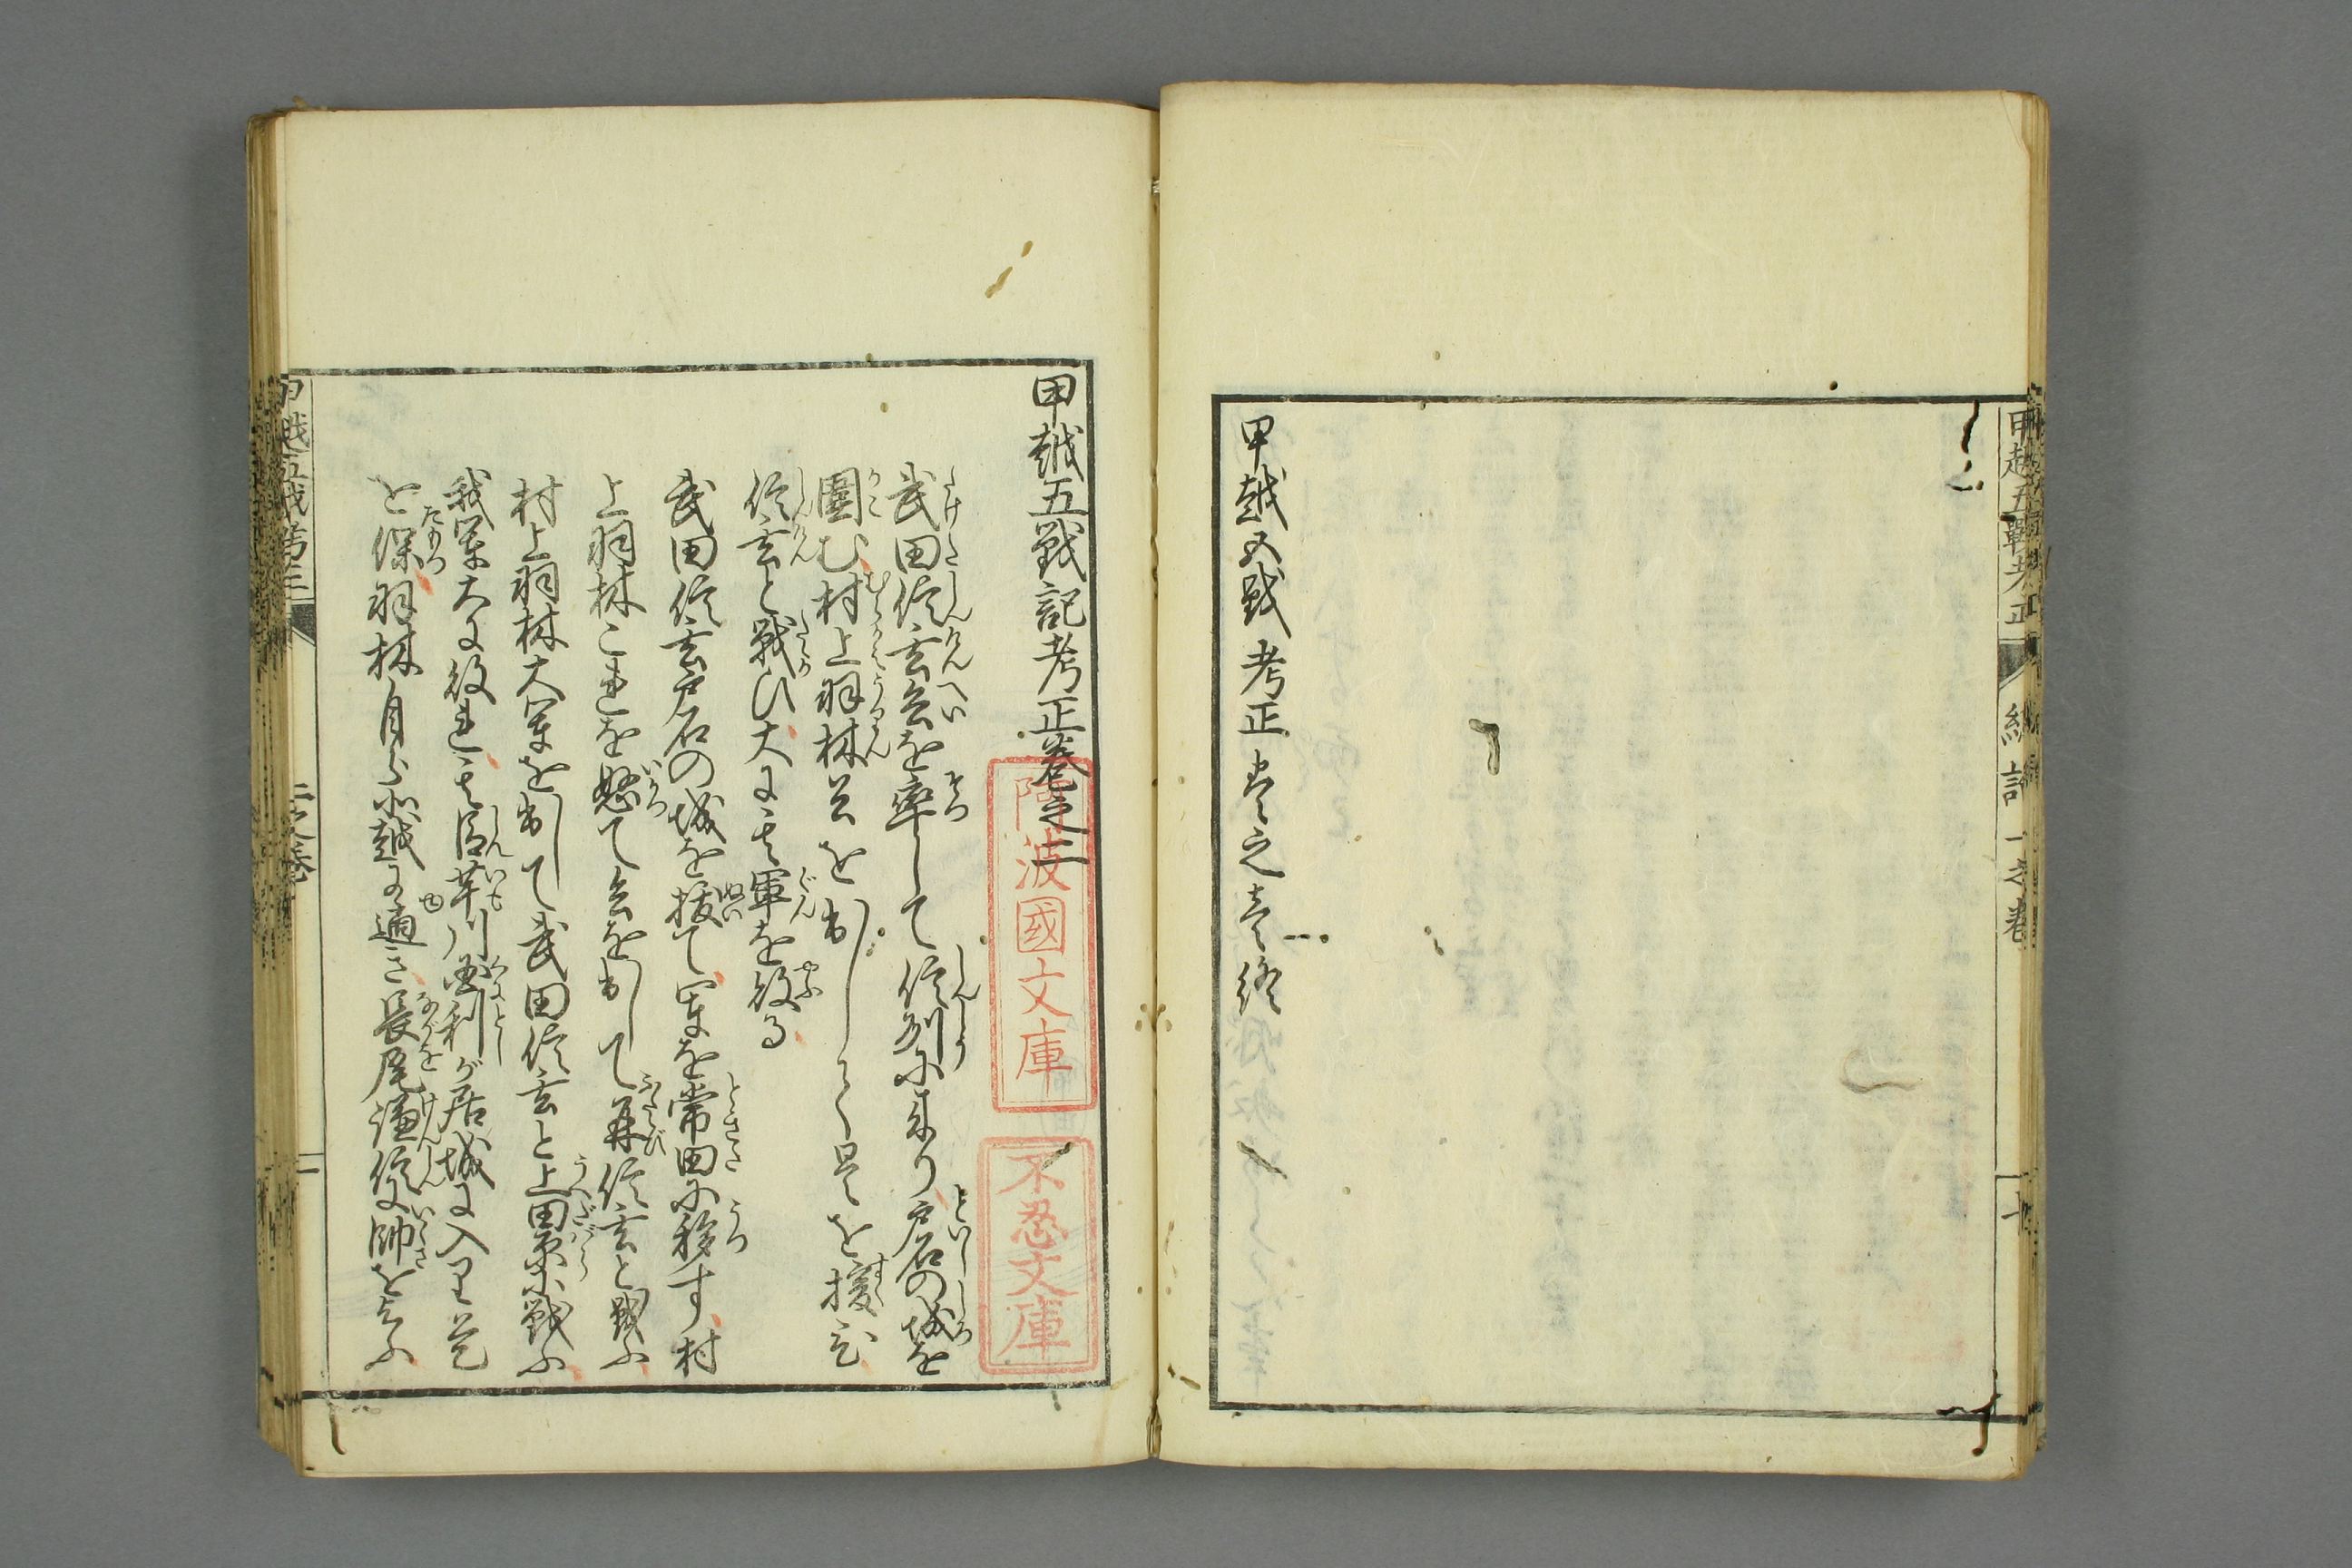 甲越五戰考正
総評一之巻
甲越五戦考正巻之壱終
甲越五戰記考正巻之二
阿波國文庫
不忍文庫
武田信玄兵を率して信州に来り戸石の城を
圍む村上羽林公を出して是を援ひ
信玄と戦ひ大に其軍を敗る
武田信玄戸石の城を抜て軍を常田に移す村
上羽林これを怒て兵を出して再信玄と戦ふ
村上羽林大軍を出して武田信玄と上田原に戦ふ
我軍大に敗れ其臣芋川
利が居城に入て是
を保羽林自ら北越に適き長尾謙信に師を乞ふ